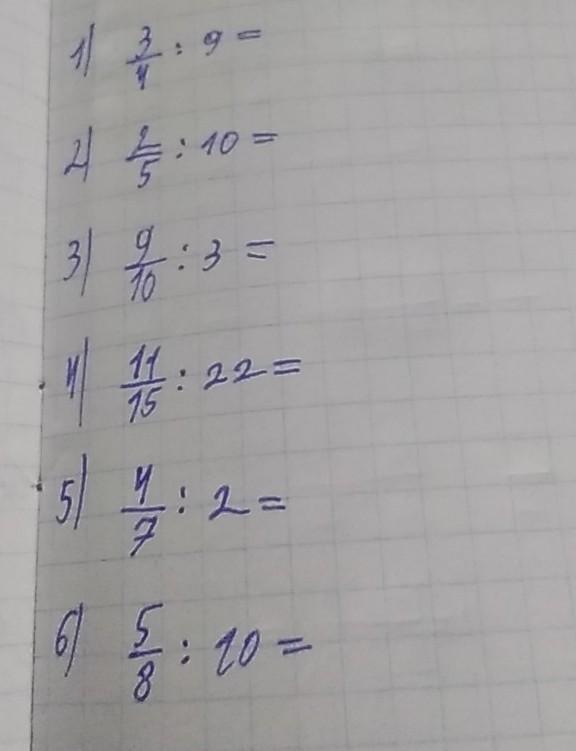 1) 3/4 : 9 =
2) 2/5 : 10 =
3) 9/10 : 3 =
4) 11/15 : 22 =
5) 4/7 : 2 =
6) 5/8 : 10 =